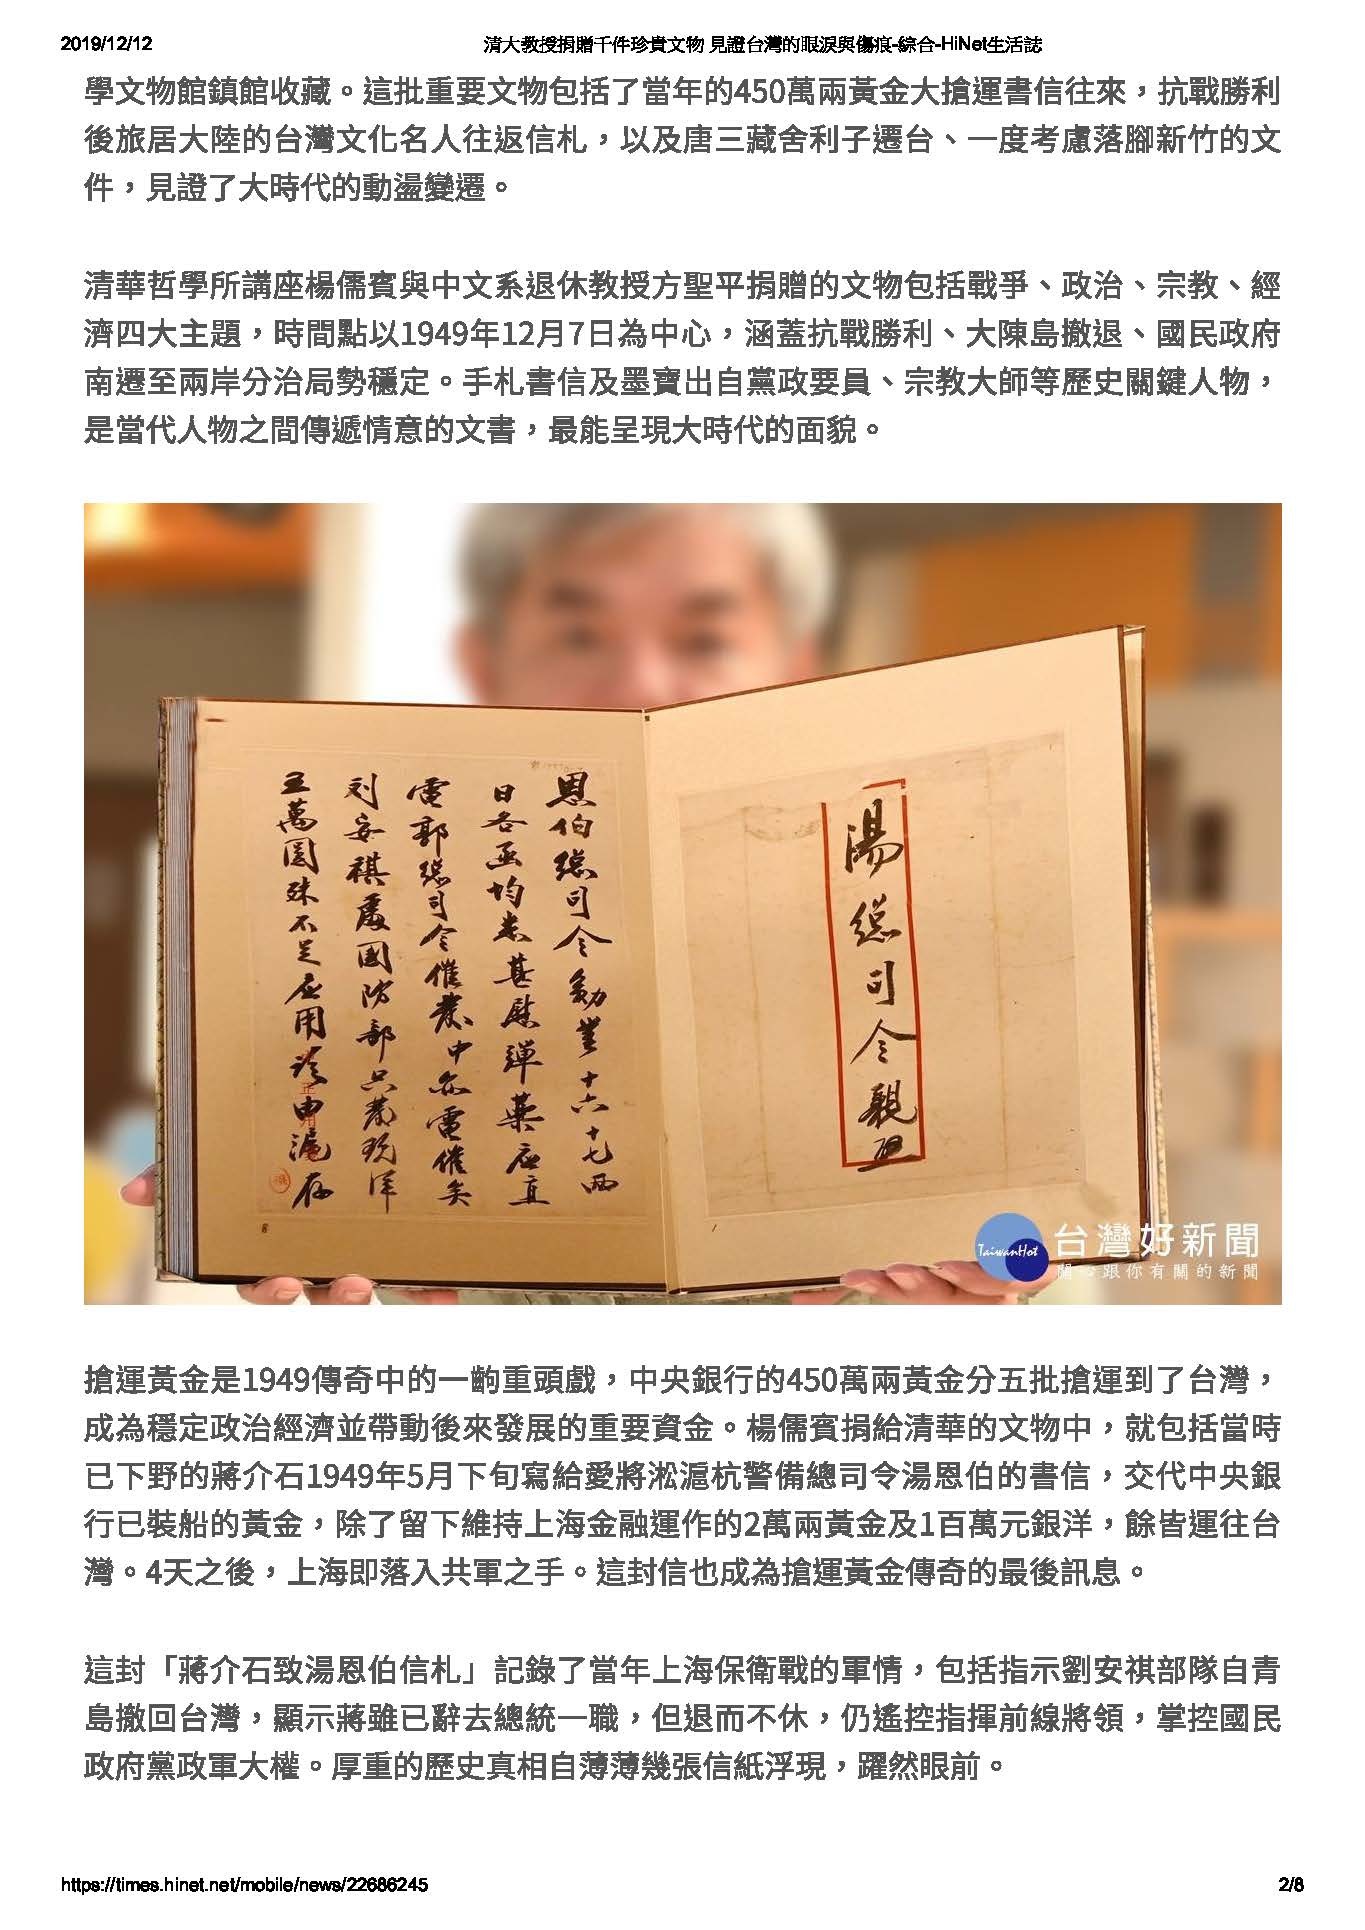 2019/12/12
清大教授捐贈千件珍貴文物 見證台灣的眼淚與傷痕-綜合-HiNet生活誌
學文物館鎮館收藏。這批重要文物包括了當年的450萬兩黃金大搶運書信往來，抗戰勝利
後旅居大陸的台灣文化名人往返信札，以及唐三藏舍利子遷台、一度考慮落腳新竹的文
件，見證了大時代的動盪變遷。
清華哲學所講座楊儒賓與中文系退休教授方聖平捐贈的文物包括戰爭、政治、宗教、經
濟四大主題，時間點以1949年12月7日為中心，涵蓋抗戰勝利、大陳島撤退、國民政府
南遷至兩岸分治局勢穩定。手札書信及墨寶出自黨政要員、宗教大師等歷史關鍵人物，
是當代人物之間傳遞情意的文書，最能呈現大時代的面貌。
湯總司令親啟
恩伯總司令勛鑒十六十七兩
日各函均悉甚慰彈藥應直
電郭總司令催發中亦電催矣
刘安祺處國防部只發現洋
五萬圓殊不足应用
由滬存
台灣好新聞
TaiwanHot
關心跟你有關的新聞
搶運黃金是1949傳奇中的一齣重頭戲，中央銀行的450萬兩黃金分五批搶運到了台灣，
成為穩定政治經濟並帶動後來發展的重要資金。楊儒賓捐給清華的文物中，就包括當時
已下野的蔣介石1949年5月下旬寫給愛將淞滬杭警備總司令湯恩伯的書信，交代中央銀
行已裝船的黃金，除了留下維持上海金融運作的2萬兩黃金及1百萬元銀洋，餘皆運往台
灣。4天之後，上海即落入共軍之手。這封信也成為搶運黃金傳奇的最後訊息。
這封「蔣介石致湯恩伯信札」記錄了當年上海保衛戰的軍情，包括指示劉安祺部隊自青
島撤回台灣，顯示蔣雖已辭去總統一職，但退而不休，仍遙控指揮前線將領，掌控國民
政府黨政軍大權。厚重的歷史真相自薄薄幾張信紙浮現，躍然眼前。
https://times.hinet.net/mobile/news/22686245
2/8